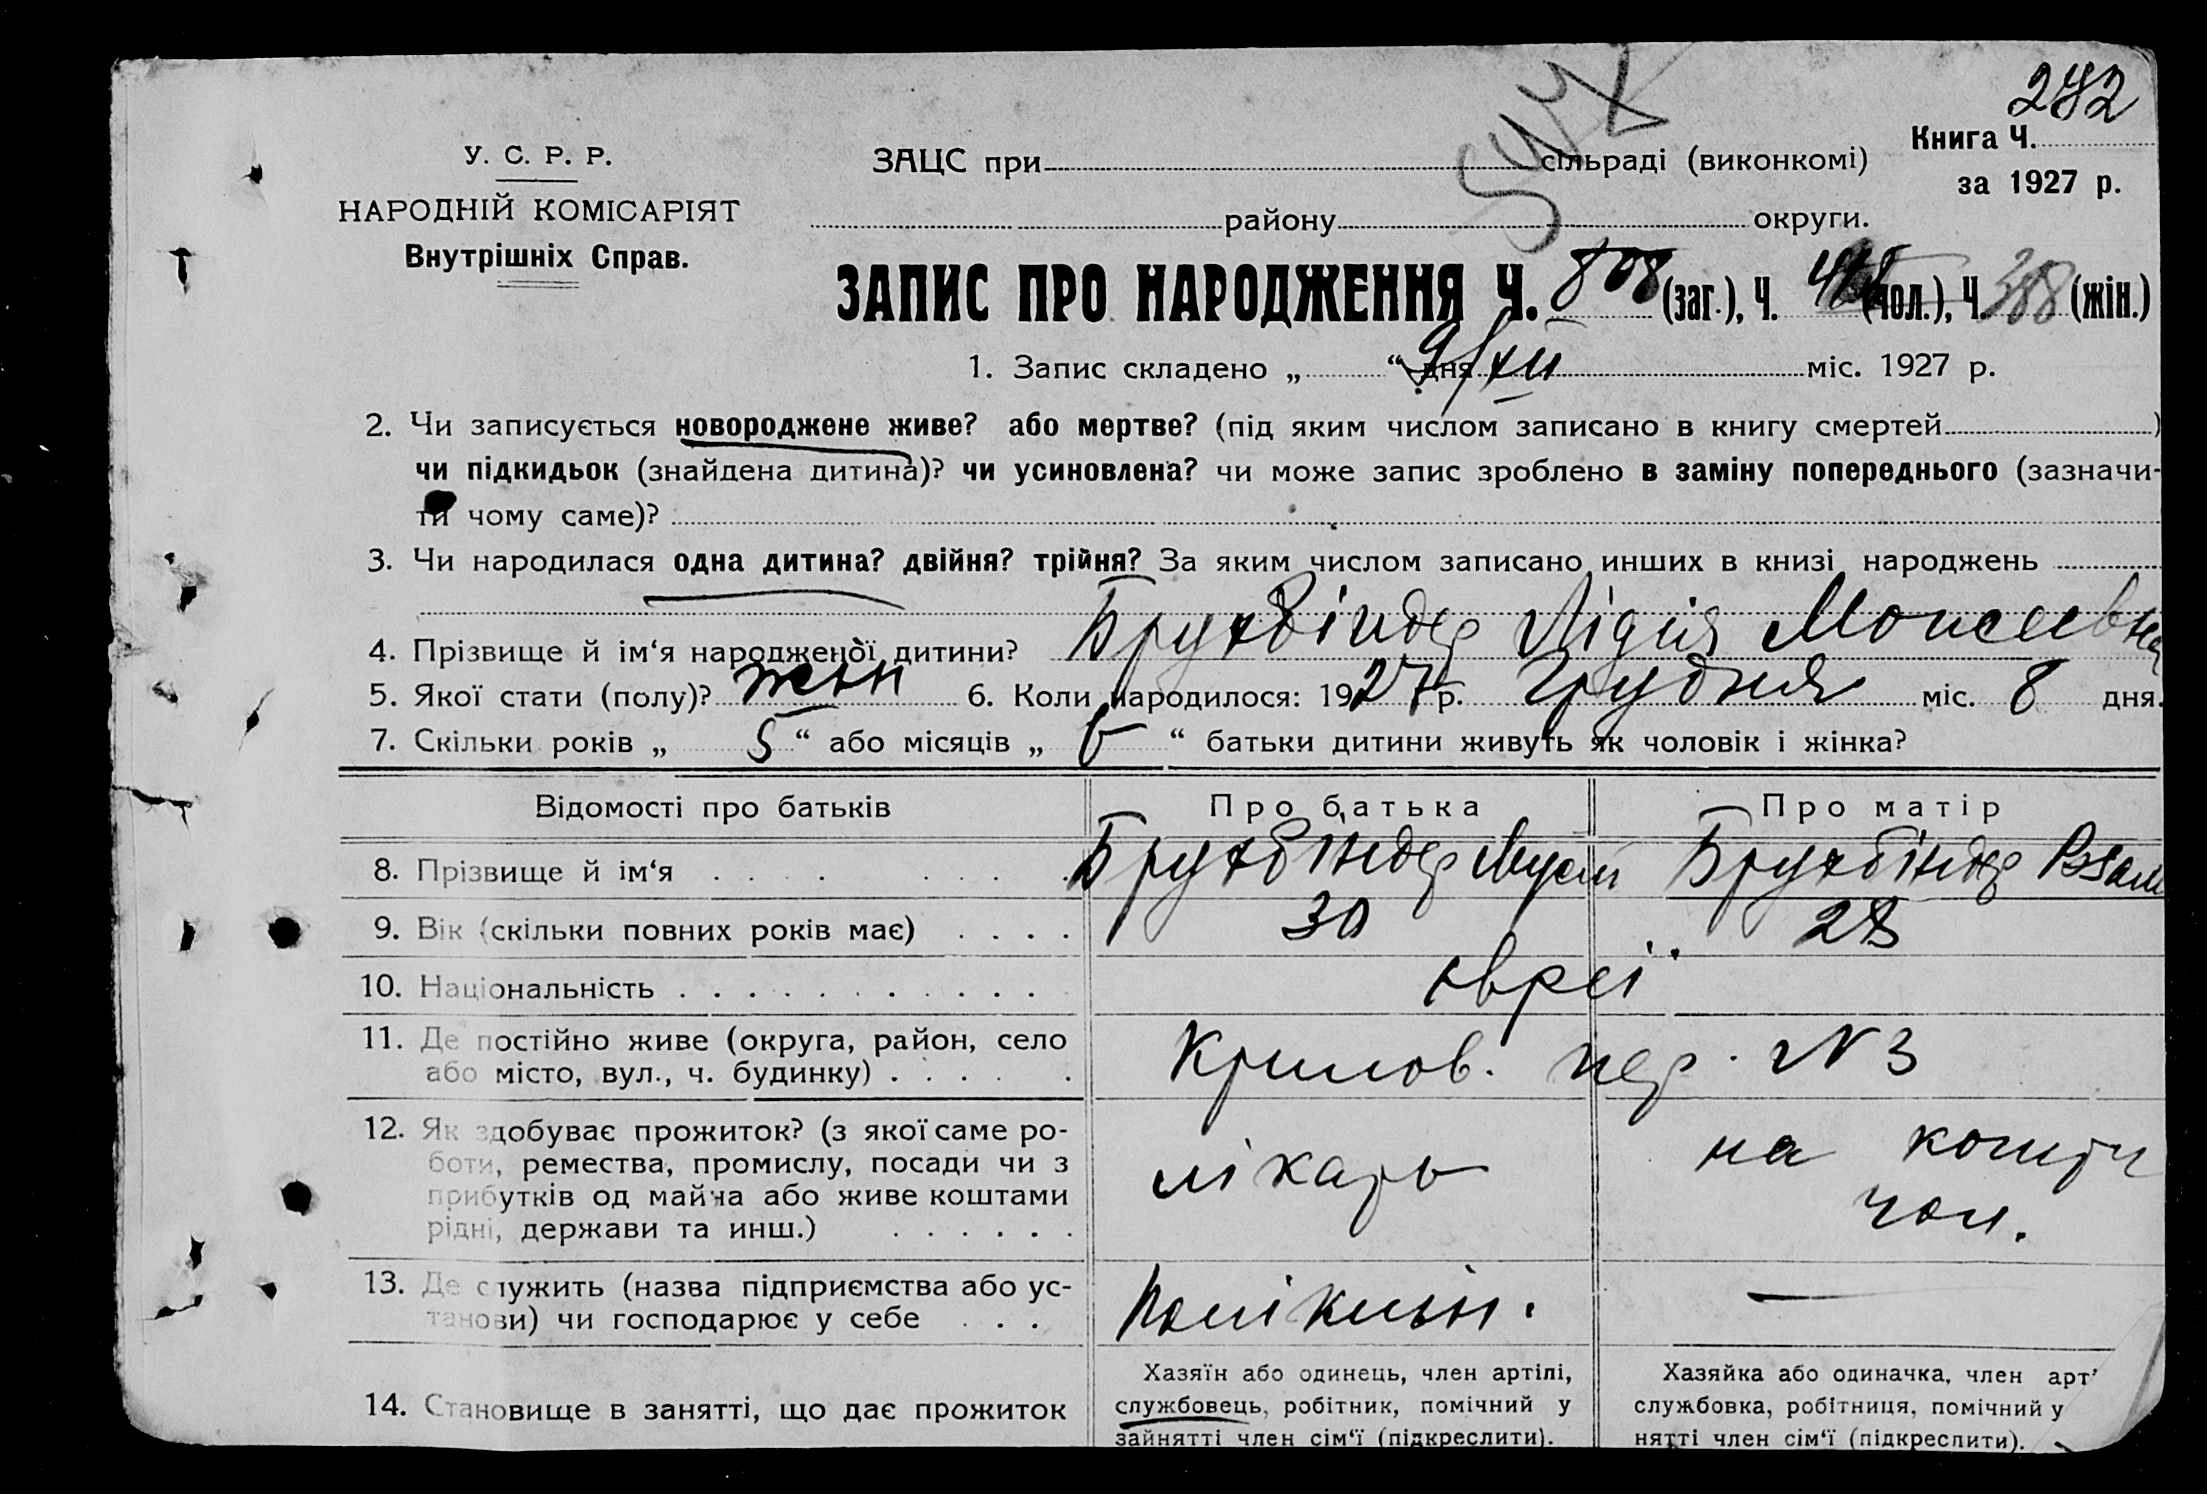 282
У. С. Р. Р.
НАРОДНІЙ КОМІСАРІЯТ
Внутрішніх Справ.
ЗАЦС при сільраді (виконкомі)
району округи.
Книга Ч.
за 1927 р.
ЗАПИС ПРО НАРОДЖЕННЯ Ч. 808 (заг.), Ч. (чол.), Ч. 388 (жін.)
1. Запис складено „ “ дня 9/XII міс. 1927 р.
2. Чи записується новороджене живе? або мертве? (під яким числом записано в книгу смертей )
чи підкидьок (знайдена дитина)? чи усиновлена? чи може запис зроблено в заміну попереднього (зазначи-
ти чому саме)?
3. Чи народилася одна дитина? двійня? трійня? За яким числом записано инших в книзі народжень
4. Прізвище й ім‘я народженої дитини? Брухбіндер Лідія Моисеевна
5. Якої стати (полу)? жін 6. Коли народилося: 1927 р. Грудня міс. 8 дня.
7. Скільки років „ 5 “ або місяців „ “ батьки дитини живуть як чоловік і жінка?
Відомості про батьків Про батька Про матір
8. Прізвище й ім‘я . . . . . . . . Брухбіндер Мусій Брухбіндер
9. Вік (скільки повних років має) . . . . 30 28
10. Національність . . . . . . . . . . . . євреї
11. Де постійно живе (округа, район, село
або місто, вул., ч. будинку) . . . . . Крилов. пер. N 3
12. Як здобуває прожиток? (з якої саме ро-
боти, ремества, промислу, посади чи з
прибутків од майна або живе коштами
рідні, держави та инш.) . . . . . .
лікарь
на кошти
чол.
13. Де служить (назва підприємства або ус-
танови) чи господарює у себе . . .
Полікнін. —
14. Становище в занятті, що дає прожиток
Хазяїн або одинець, член артілі,
службовець, робітник, помічний у
зайнятті член сім‘ї (підкреслити).
Хазяйка або одиначка, член арт
службовка, робітниця, помічний у
нятті член сім‘ї (підкреслити).